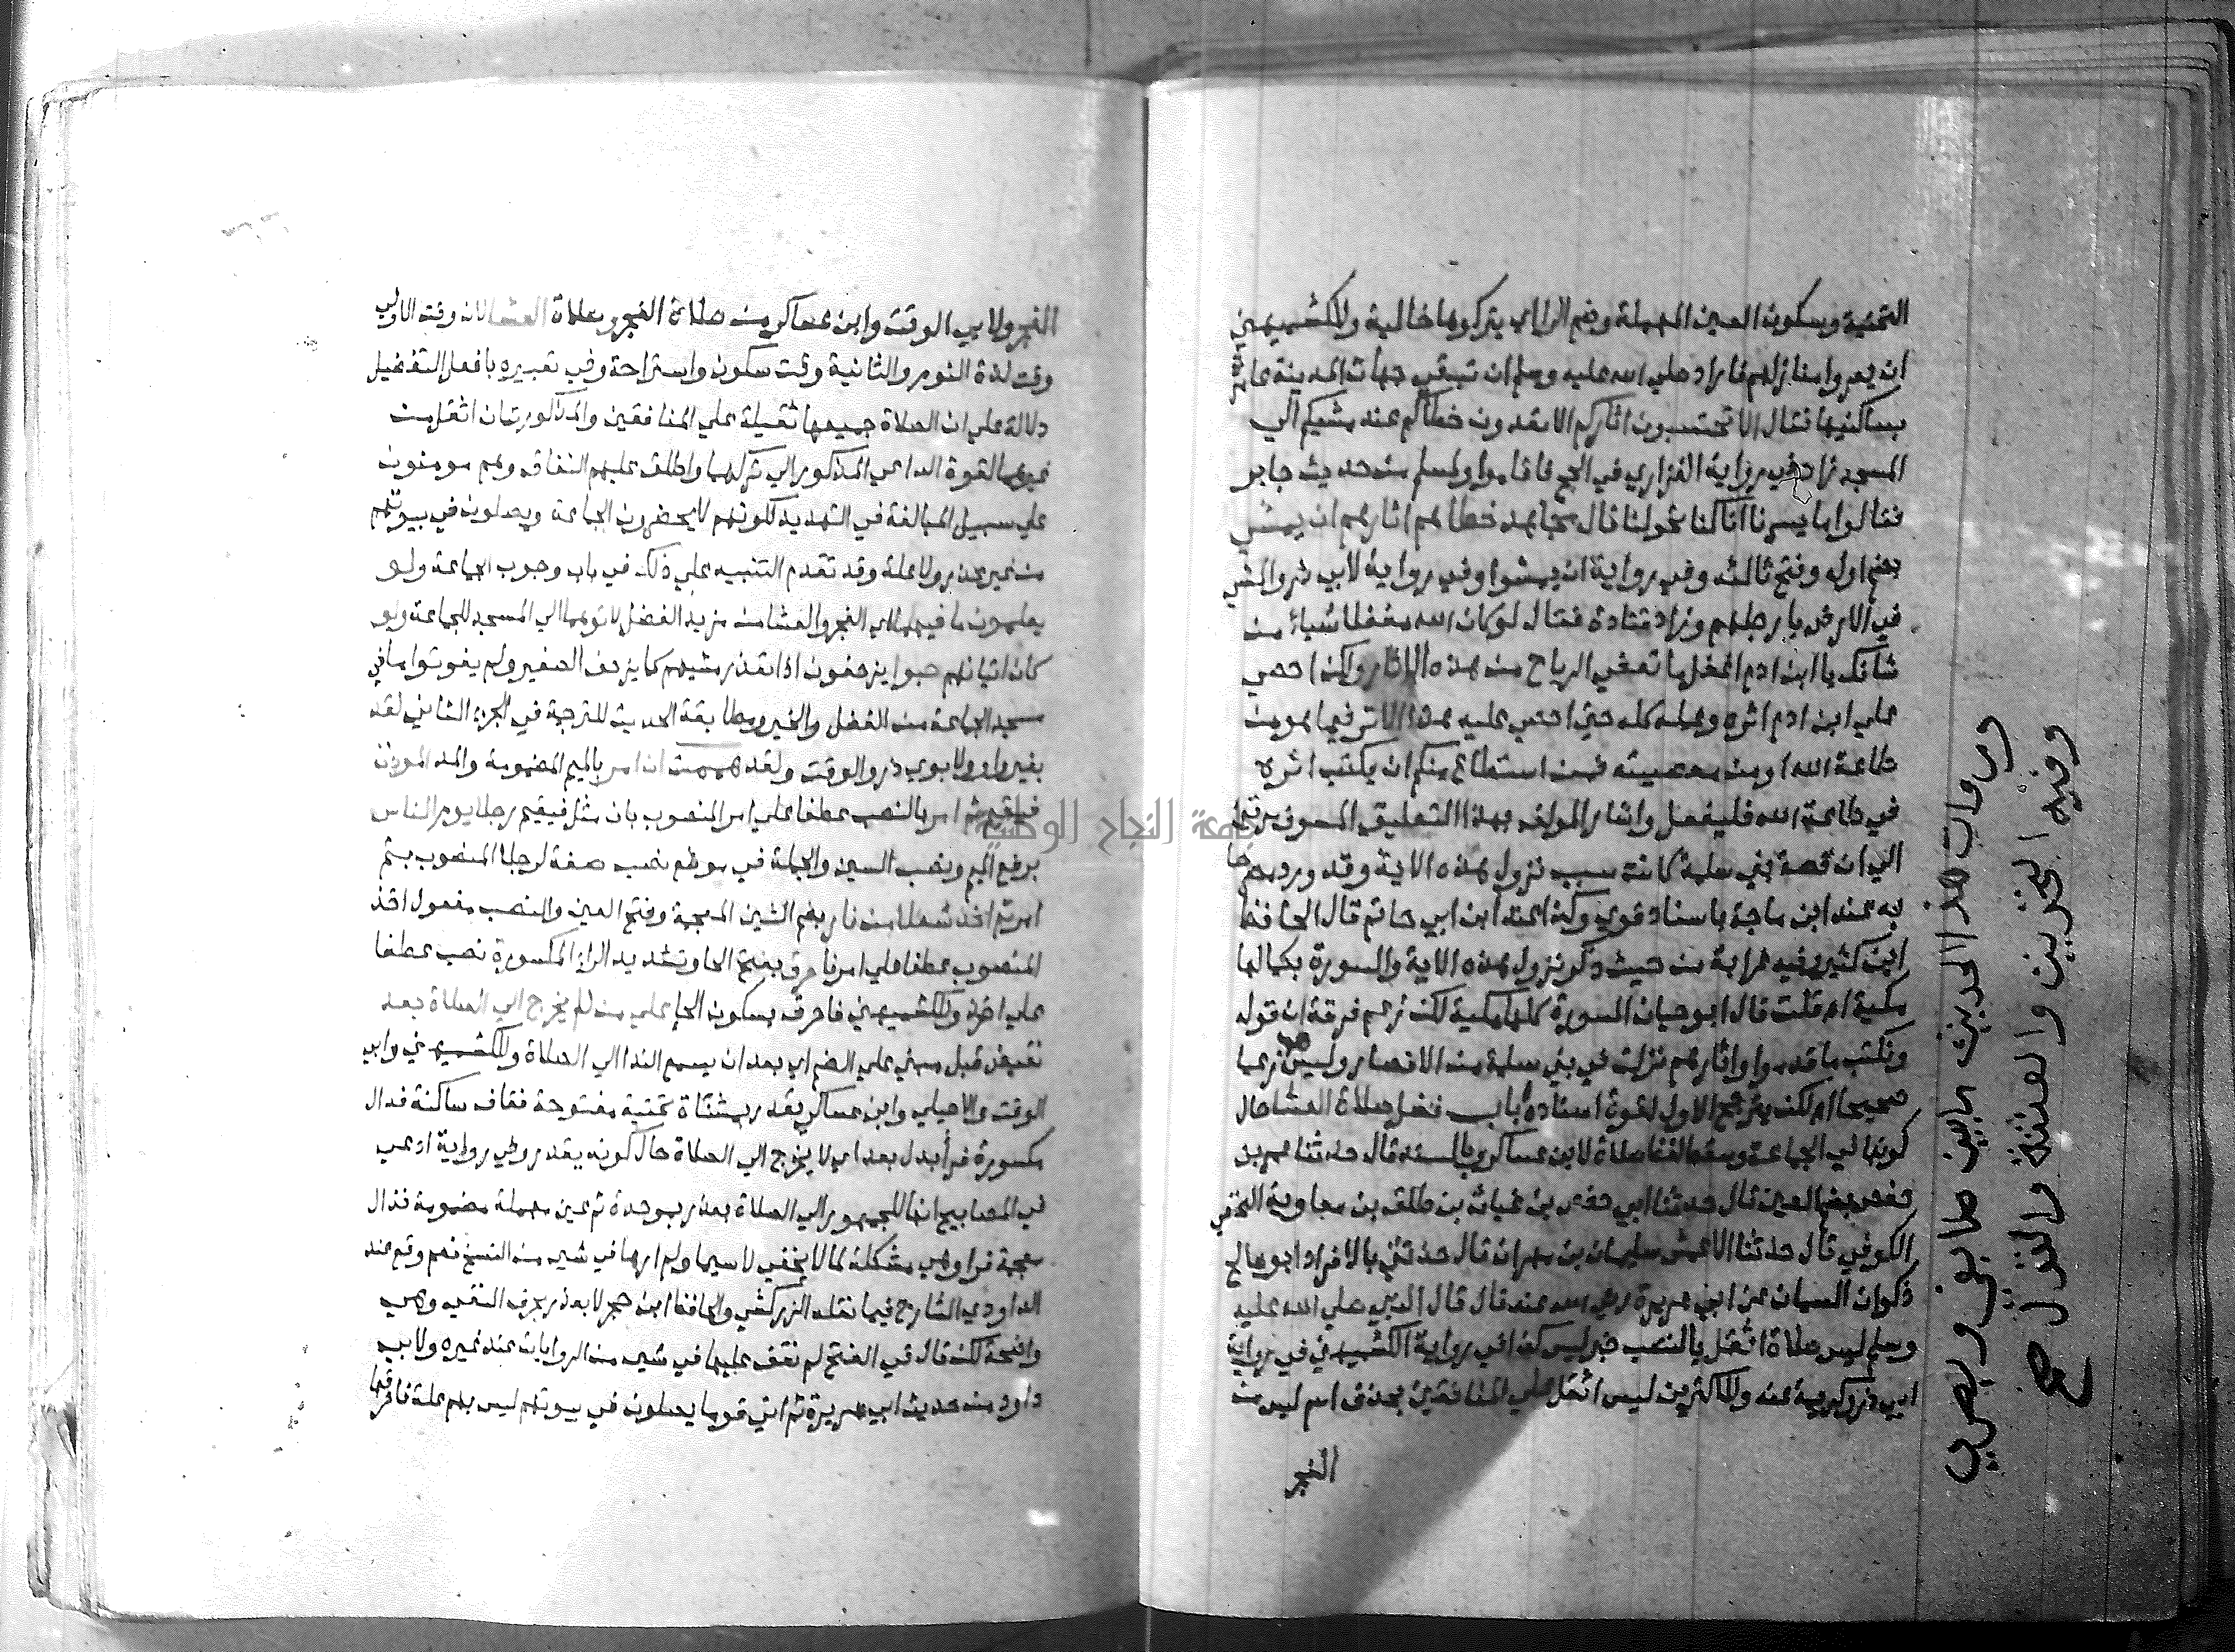 التحتية وسكون العين المهملة وضم الراء اي يتركوها خالية وللكشميهني
ان يعروا منازلهم فاراد صلي الله عليه وسلم ان تبقي جهات المدينة عامرة
بساكنيها فقال الا تحتسبون اثاركم الا تعدون خطاكم عند مشيكم الي
المسجد زاد في رواية الفزاري في الحج فاقاموا ولمسلم من حديث جابر
فقالوا ما يسرنا انا كنا تحولنا قال مجاهد خطاهم اثارهم ان يمشي
بضم اوله وفتح ثالثه وفي رواية ان يمشوا وفي رواية لابي ذر والمشي
في الارض بارجلهم وزاد قتادة فقال لو كان الله مغفلا شياء من
شانك يا ابن ادم اغفل ما تعفي الرياح من هذه الاثار ولكن احصي
علي ابن ادم اثره وعمله كله حتي احصي عليه هذا الاثر فيما هو من
طاعة الله او من معصيته فمن استطاع منكم ان يكتب اثره
في طاعة الله فليفعل واشار المولف بهذا التعليق المسوق مرتين
الي ان قصة بني سلمة كانت سبب نزول هذه الاية وقد ورد مصرحا
به عند ابن ماجة باسناد قوي وكذا عند ابن ابي حاتم قال الحافظ
ابن كثير وفيه غرابة من حيث ذكر نزول هذه الاية والسورة بكمالها
مكية اه قلت قال ابو حيان السورة كلها مكية لكن زعم فرقة ان قوله
ونكتب ما قدموا واثارهم نزلت في بني سلمة من الانصار وليس هو زعما
صحيحا اه لكن يترجح الاول لقوة اسناده باب فضل صلاة العشا حال
كونها في الجماعة وسقط لفظ صلاة لابن عساكر وبالسند قال حدثنا عمر بن
حفص بضم العين قال حدثنا ابي حفص بن غياث بن طلق بن معاوية النخعي
الكوفي قال حدثنا الاعمش سليمان بن مهران قال حدثني بالافراد ابو صالح
ذكوان السمان عن ابي هريرة رضي الله عنه قال قال النبي صلي الله عليه
وسلم ليس صلاة اثقل بالنصب خبر ليس كذا في رواية الكشميهني في رواية
ابي ذر وكريمة عنه وللاكثرين ليس اثقل علي المنافقين بحذف اسم ليس من
الفجر
ورواة هذا الحديث مابين طايفي وبصري
وفيه التحديث والعنعنة والقول
الفجر ولابي الوقت وابن عساكر من صلاة الفجر وصلاة العشا لان وقت الاولي
وقت لذة النوم والثانية وقت سكون واستراحة وفي تعبيره بافعل التفضيل
دلالة علي ان الصلاة جميعها ثقيلة علي المنافقين والمذكورتان اثقل من
غيرهما لقوة الداعي المذكور الي تركهما واطلق عليهم النفاق وهم مومنون
علي سبيل المبالغة في التهديد لكونهم لا يحضرون الجماعة ويصلون في بيوتهم
من غير عذر ولا علة وقد تقدم التنبيه علي ذلك في باب وجوب الجماعة ولو
يعلمون ما فيهما اي الفجر والعشا من مزيد الفضل لاتوهما الي المسجد للجماعة ولو
كان اتيانهم حبوا يزحفون اذا تعذر مشيهم كما يزحف الصغير ولم يفوتوا ما في
مسجد الجماعة من الفضل والخير ومطابقة الحديث للترجمة في الجزء الثاني لقد
بغير واو ولابوي ذر والوقت ولقد هممت ان امر بالميم المضمومة والمد الموذن
فيقيم ثم امر بالنصب عطفا علي امر المنصوب بان مثل فيقيم رجلا يوم الناس
برفع الميم ونصب السين والجملة في موضع نصب صفة لرجلا المنصوب بثم
امر ثم اخذ شعلا من نار بضم الشين المعجمة وفتح العين والنصب مفعول اخذ
المنصوب عطفا علي امر فاحرق بفتح الحا وتشديد الراء المكسورة نصب عطفا
علي اخذ وللكشميهني فاحرق بسكون الحا علي من لم يخرج الي الصلاة بعد
نقيض قبل مبني علي الضم اي بعد ان يسمع الندا الي الصلاة وللكشميهني وابي
الوقت والاصيلي وابن عساكر يقدر بمثناة تحتية مفتوحة فقاف ساكنة فدال
مكسورة فراء بدل بعد اي لا يخرج الي الصلاة حال كونه يقدر وفي رواية ادعي
في المصابيح انها للجمهور الي الصلاة بعذر بموحدة ثم عين مهملة مضمومة فذال
معجمة فرا وهي مشكلة لما لا يخفي لا سيما ولم ارها في شي من النسخ نعم وقع عند
الداودي الشارح فيما نقله الزركشي والحافظ ابن حجر لا بعذر بحرف النفي وهي
واضحة لكن قال في الفتح لم نقف عليها في شي من الروايات عند غيره ولابي
داود من حديث ابي هريرة ثم اتي قوما يصلون في بيوتهم ليس بهم علة فاحرقها
جامعة النجاح الوطنية